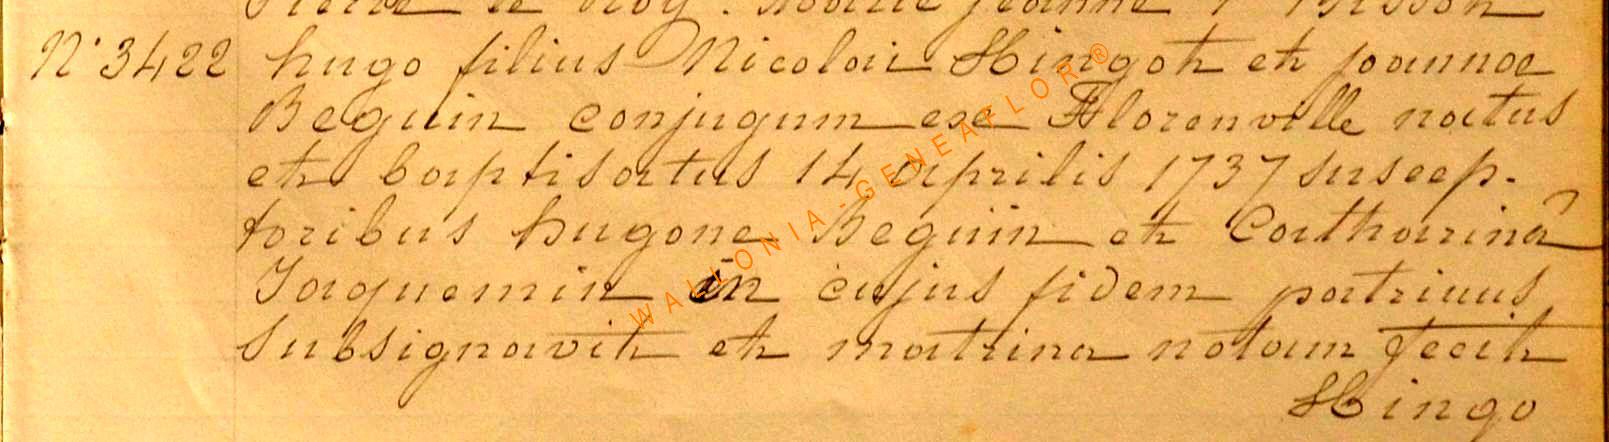 Pierre le Roy. Marie Jeanne Bisson
N° 3422 hugo filius Nicolai Hingot et joannae
Beguin conjugum ex Florenville natus
et baptisatus 14 aprilis 1737 suscep-
toribus hugone Beguin et Catharinâ
Jaquemin in cujus fidem patrinus
subsignavit et matrina notam fecit
Hingo
WALLONIA-GENEAFLOR®